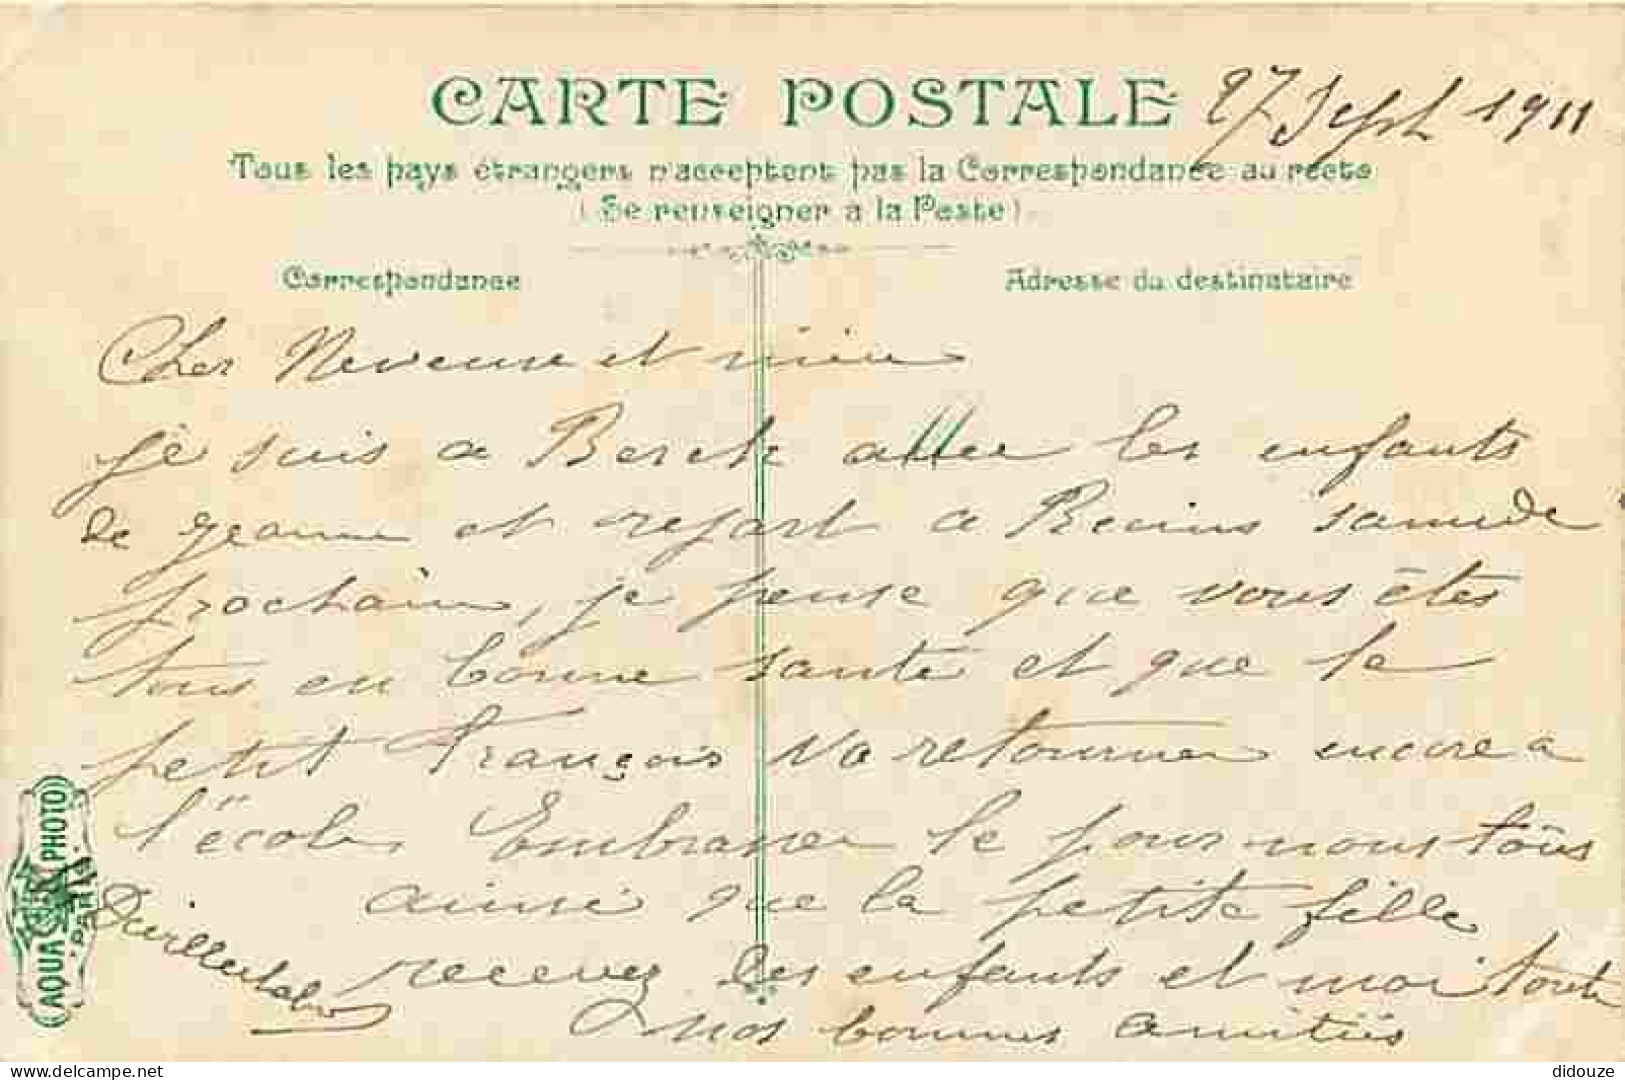 CARTE POSTALE
27 Sept 1911
Tous les pays étrangers n'acceptent pas la Correspondance au recto
(Se renseigner à la Poste)
Correspondance
Adresse du destinataire
Cher Neveuse et nièce
je suis a Berck allee les enfants
de jeanne et repart a samedi
prochain, je pense que vous êtes
tous en bonne santé et que le
petit françois va retourner encore a
l'école, Embrasser le pour nous tous
ainsi que la petite fille
recevez les enfants et moi toute
nos bonnes amitiés
AQUA PHOTO
PARIS
delcampe.net
didouze